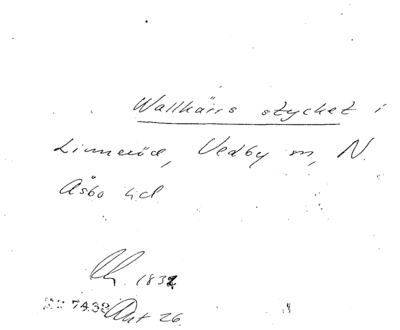 Wallkärrs stycket i
Linneröd, Vedby sn, N.
Åsbo hd
1832
7438 Ant 26.